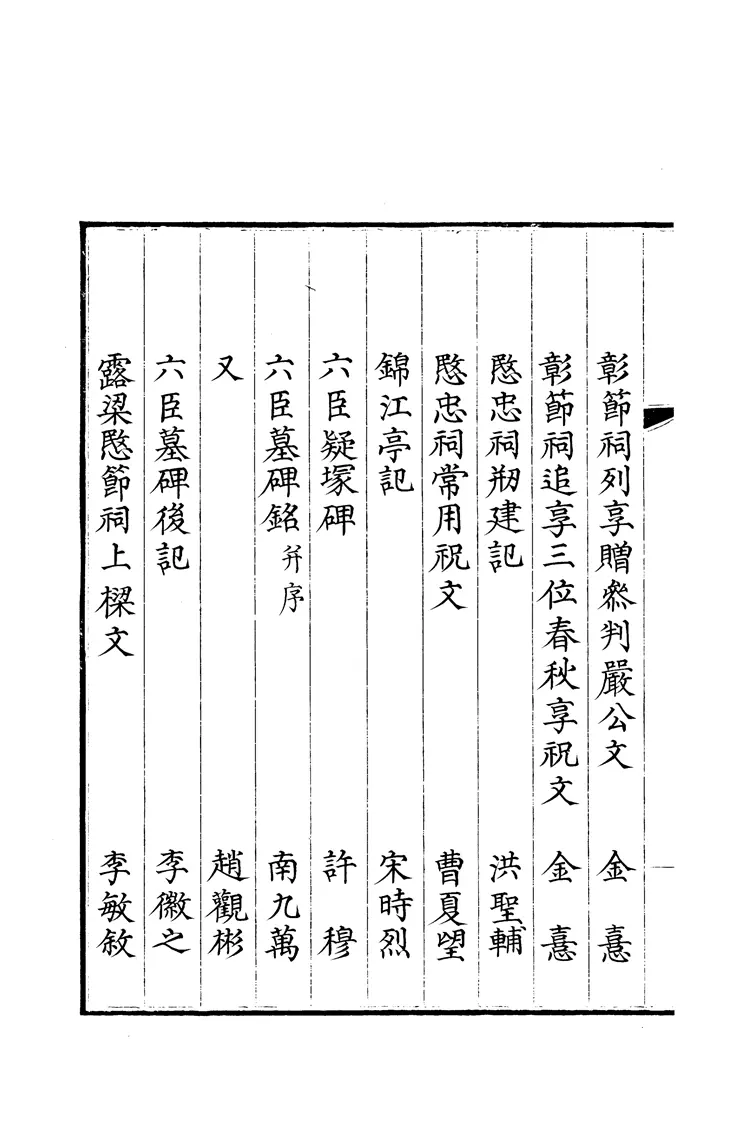 彰節祠列享贈叅判嚴公文 金憙
彰節祠追享三位春秋享祝文 金憙
愍忠祠剏建記 洪聖輔
愍忠祠常用祝文 曹夏望
錦江亭記 宋時烈
六臣疑塚碑 許穆
六臣墓碑銘 并序 南九萬
又 趙觀彬
六臣墓碑後記 李徽之
露梁愍節祠上樑文 李敏敘